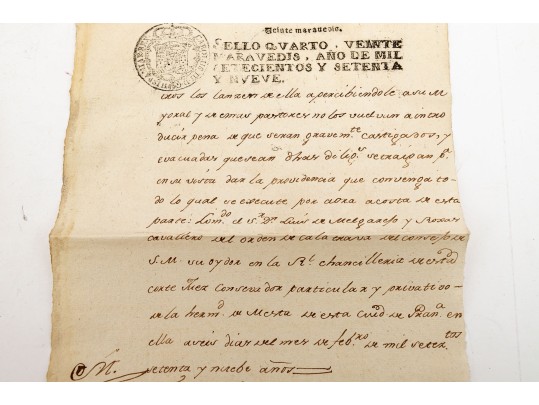 Veinte maravedis.
SELLO QVARTO, VEINTE
MARAVEDIS, AÑO DE MIL
SETECIENTOS Y SETENTA
Y NVEVE.
los lanzen de ella apercibiendole a su M
yoral y demas pastores no los vuelvan a intro
ducir pena de que seran gravem.te castigados, y
evacuadas que sean dhas dilig.s se traigan p.a
en su vista dar la providencia que convenga to
do lo qual se execute por aora acosta de esta
parte: Lo m.do el S.r D.n Luis de Melgarejo y Roxas
cavallero del orden de Calatrava del consejo de
S. M. su oydor en la R.l chancilleria de esta
corte Juez Conservador particular y privativo
de la herm.d de Mesta de esta ciud.d de Gran.a en
ella a seis dias del mes de feb.ro de mil setez.tos
setenta y nuebe años